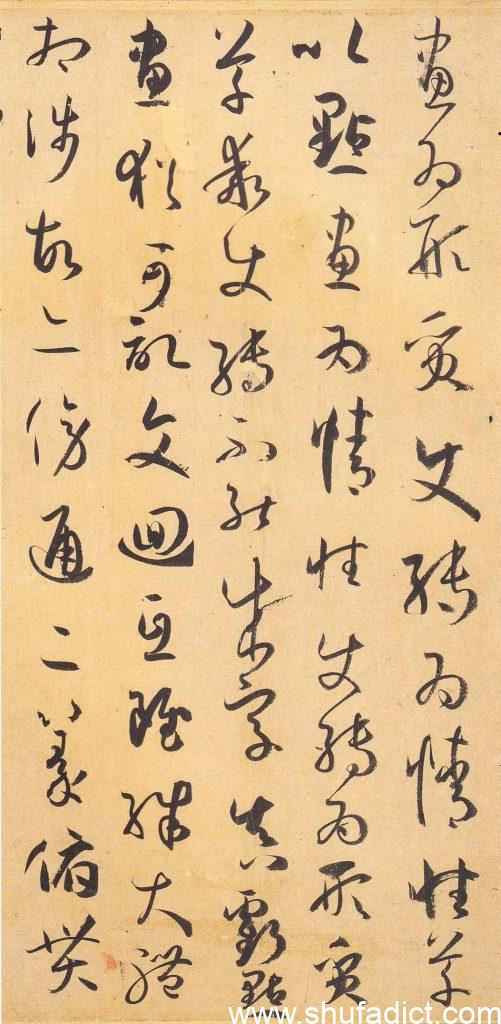 畫為形質使轉為情性草
以點畫為情性使轉為形質
草乖使轉不能成字真虧點
畫猶可記文迴互雖殊大體
相涉故亦傍通二篆俯貫
www.shufadict.com